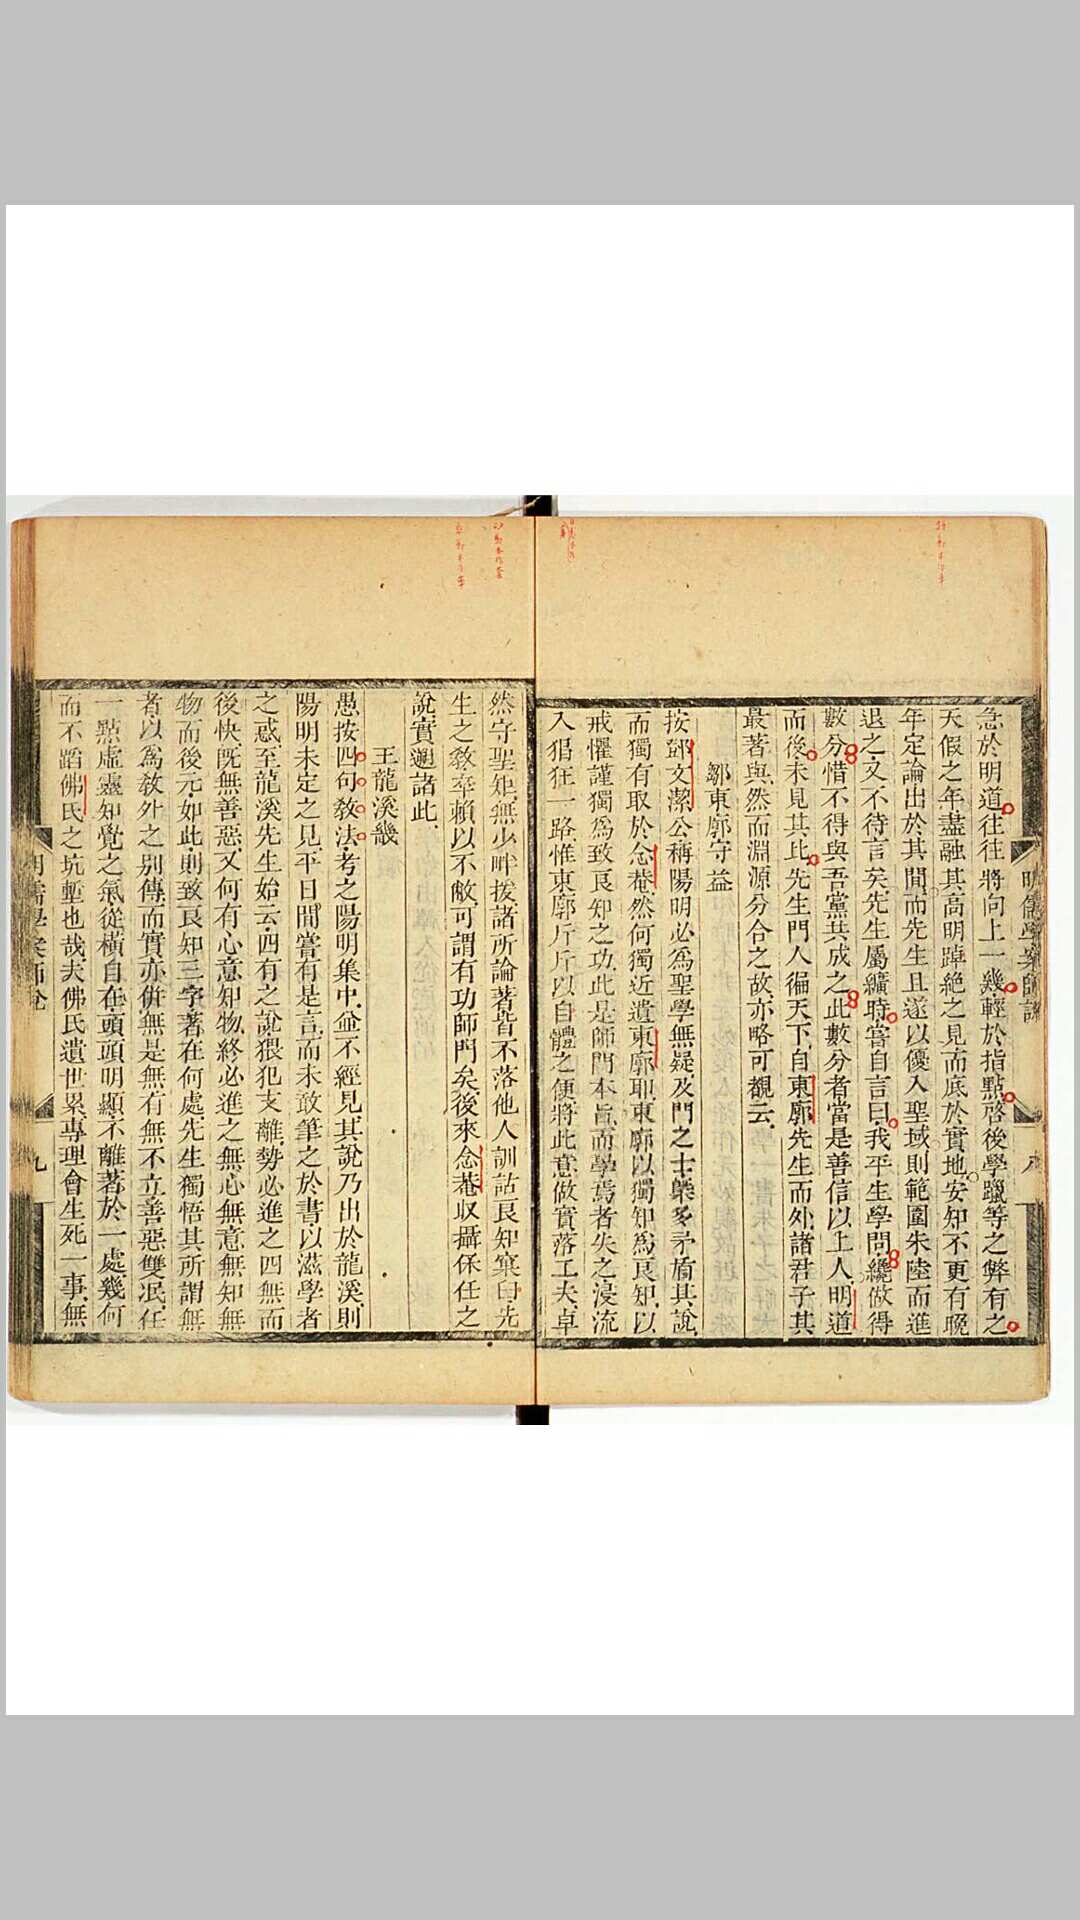 急於明道往往將向上一幾輕於指點啓後學躐等之弊有之
天假之年盡融其高明踔絶之見而底於實地安知不更有晚
年定論出於其間而先生且遂以優入聖域則範圍朱陸而進
退之又不待言矣先生屬纊時嘗自言曰我平生學問纔做得
數分惜不得與吾黨共成之此數分者當是善信以上人明道
而後未見其比先生門人徧天下自東廓先生而外諸君子其
最著與然而淵源分合之故亦略可覩云
鄒東廓守益
按鄧文潔公稱陽明必爲聖學無疑及門之士槩多矛盾其說
而獨有取於念菴然何獨近遺東廓耶東廓以獨知爲良知以
戒懼謹獨爲致良知之功此是師門本旨而學焉者失之浸流
入猖狂一路惟東廓斤斤以自體之便將此意做實落工夫卓
明儒學案師說
八
然守聖矩無少畔援諸所論著皆不落他人訓詁良知窠臼先
生之敎卒賴以不敝可謂有功師門矣後來念菴收攝保任之
說實遡諸此
王龍溪畿
愚按四句敎法考之陽明集中並不經見其說乃出於龍溪則
陽明未定之見平日間嘗有是言而未敢筆之於書以滋學者
之惑至龍溪先生始云四有之說猥犯支離勢必進之四無而
後快旣無善惡又何有心意知物終必進之無心無意無知無
物而後元如此則致良知三字著在何處先生獨悟其所謂無
者以爲敎外之別傳而實亦併無是無有無不立善惡雙泯任
一點虛靈知覺之氣從橫自在頭頭明顯不離著於一處幾何
而不蹈佛氏之坑塹也哉夫佛氏遺世累專理會生死一事無
明儒學案師說
九